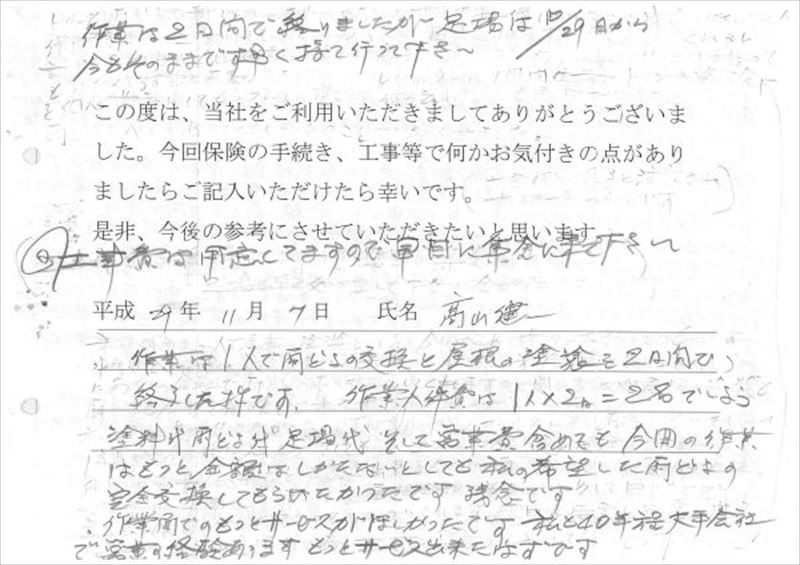 作業は2日間で終りましたが 足場は10/29日から
今もそのままです早く持て行って下さい
この度は、当社をご利用いただきましてありがとうございま
した。今回保険の手続き、工事等で何かお気付きの点があり
ましたらご記入いただけたら幸いです。
是非、今後の参考にさせていただきたいと思います。
工事費は用意してますので 早目に集金に来て下さい
平成 29年 11月 7日 氏名 高山健一
作業は1人で雨どよの交換と屋根の塗装も2日間で
終了した様です、 作業人件費は1人×2日=2名でしよう
塗料代雨どよ代 足場代 そして営業費含めても 今回の作業
はもっと金額はしかたないとしても私の希望した雨どよの
完全交換してもらいたかったです 残念です
作業面でのもっとサービス力がほしかったです 私も40年程大手会社
で営業の経験あります もっとサービス出来たはずです